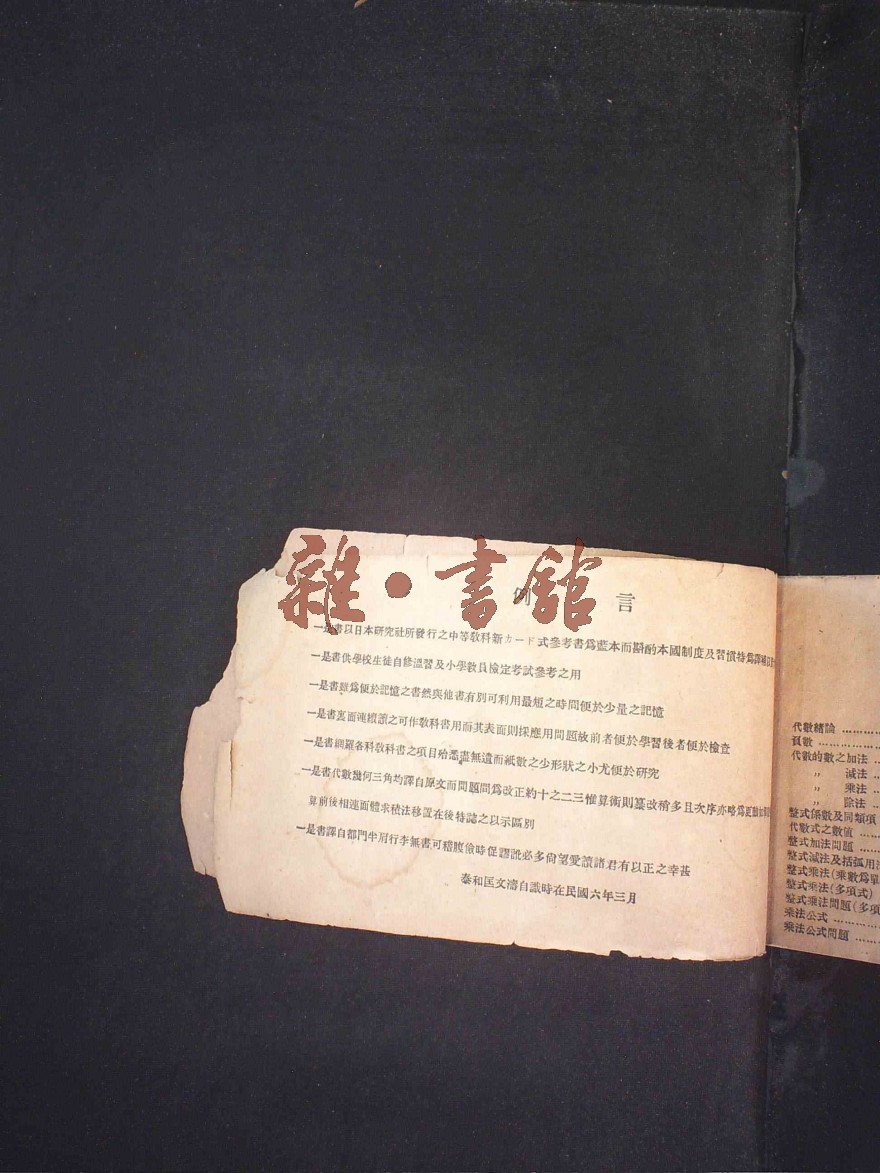 雜·書館
例言
一是書以日本研究社所發行之中等敎科新カード式參考書爲藍本而斟酌本國制度及習慣特爲譯補以
一是書供學校生徒自修溫習及小學敎員檢定考試參考之用
一是書雖爲便於記憶之書然與他書有別可利用最短之時間便於少量之記憶
一是書裏面連續讀之可作敎科書用而其表面則採應用問題故前者便於學習後者便於檢查
一是書網羅各科敎科書之項目殆悉盡無遺而紙數之少形狀之小尤便於研究
一是書代數幾何三角均譯自原文而問題間爲改正約十之二三惟算術則纂改稍多且次序亦略爲更動如
算前後相連面體求積法移置在後特誌之以示區別
一是書譯自部門牛屑行李無書可稽腹儉時促謬訛必多尙望愛讀諸君有以正之幸甚
泰和匡文濤自識時在民國六年三月
代數緒論
負數
代數的數之加法
〃 減法
〃 乘法
〃 除法
整式係數及同類項
代數式之數值
整式加法問題
整式減法及括弧用
整式乘法(乘數爲單
整式乘法(多項式)
整式乘法問題(多項
乘法公式
乘法公式問題